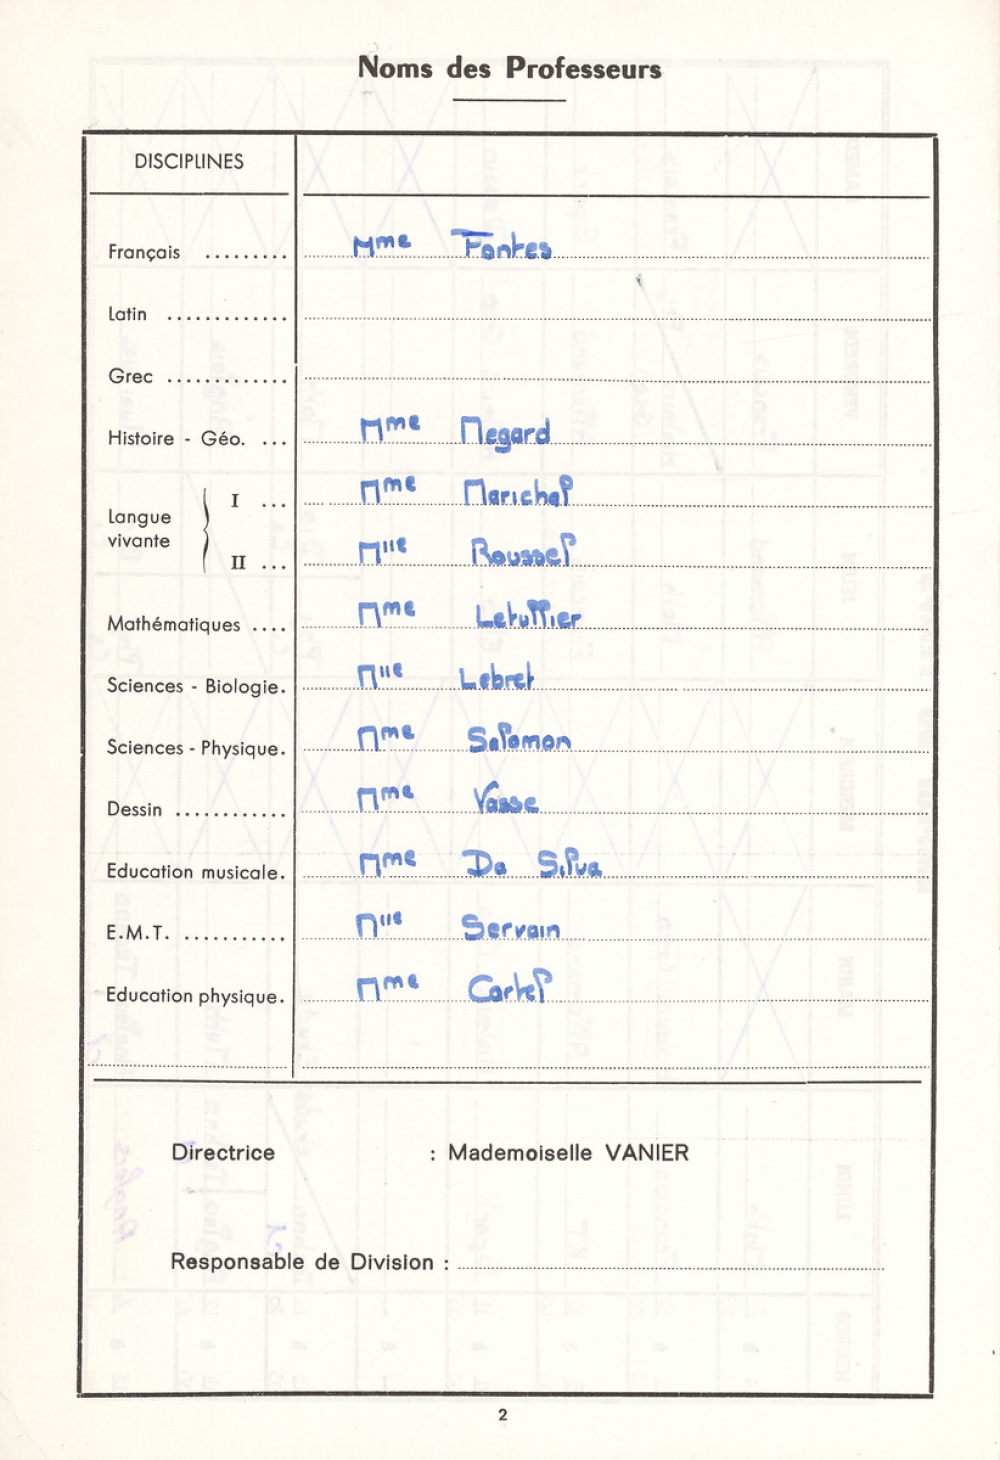 Noms des Professeurs
DISCIPLINES
Français ......... Mme Fontes
Latin .............
Grec .............
Histoire - Géo. ... Mme Megard
Langue vivante { I ... Mme Marichal
II ... Mlle Roussel
Mathématiques .... Mme Letullier
Sciences - Biologie. Mlle Lebret
Sciences - Physique. Mme Salomon
Dessin ............ Mme Vasse
Education musicale. Mme Da Silva
E.M.T. ........... Mlle Servain
Education physique. Mme Cartel
Directrice : Mademoiselle VANIER
Responsable de Division :
2